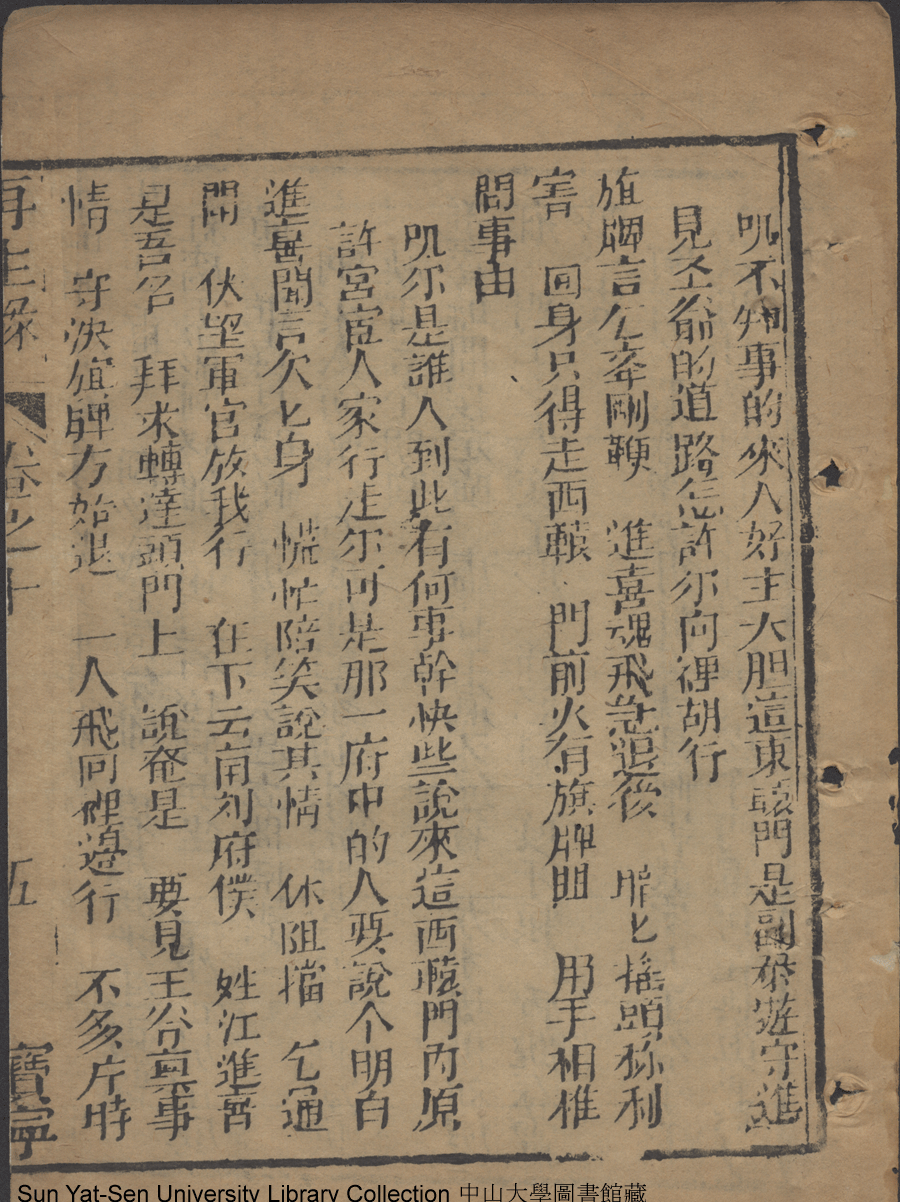 叽不知事的來人好主大胆這東轅門是副參遊守進
見王爺的道路怎許尔向裡胡行
旗牌言乞 剛鞭 進喜魂飛急退後 匕搖頭称利
害 回身只得走西轅 門前火有旗牌 用手相推
問事由
叽尔是誰人到此有何事幹快些說來這西轅門內原
許宮宦人家行走尔可是那一府中的人要說个明白
進喜聞言欠匕身 慌忙陪笑說其情 休阻擋 乞通
開 伏望軍官放我行 在下云南刘府僕 姓江進喜
是吾名 拜求轉達頭門上 說奄是 要見王爷禀事
情 守決旗牌方始退 一人飛向裡邊行 不多片時
再生緣 卷之十 五 寶寧
Sun Yat-Sen University Library Collection 中山大學圖書館藏